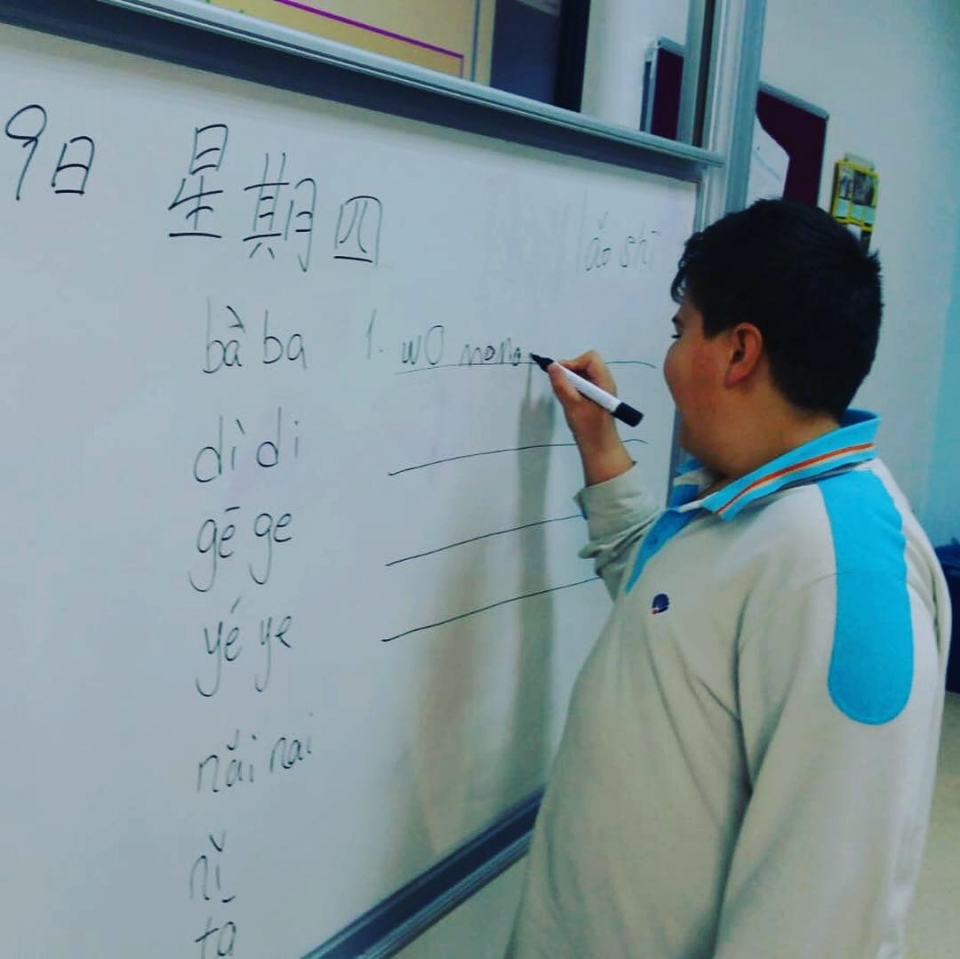 9日 星期四
lǎo shī
bà ba 1. wo
dì di
gē ge
yé ye
nǎi nai
nǐ
ta